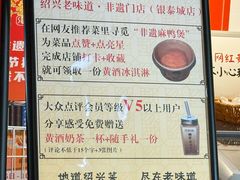 绍兴老味道·非遗门店（银泰城店）
在网友推荐菜里寻觅"非遗麻鸭煲"
为菜品点赞+点亮星
完成店铺打卡+收藏
就可领取一份黄酒冰淇淋
大众点评会员等级V5以上用户
分享感受免费赠送
黄酒奶茶一杯+随手礼一份
（评论不低于15个字+3张图片）
地道绍兴菜 尽在老味道
网红
小心